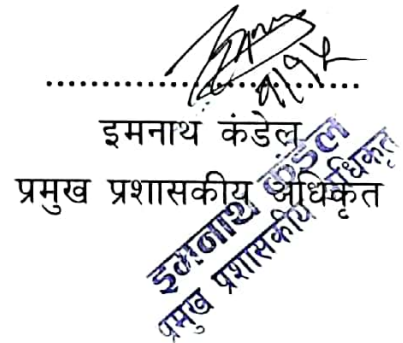 इमनाथ कंडेल
प्रमुख प्रशासकीय अधिकृत
इमनाथ कंडेल
प्रमुख प्रशासकीय अधिकृत